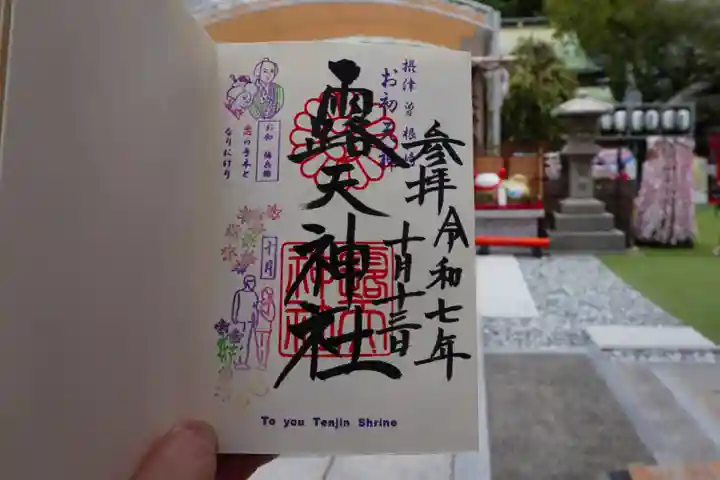 参拝 令和七年
十月十三日
摂津 曽根崎
お初天神
露天神社
お初 徳兵衛
恋の手本と
なりにけり
十月
露天
神社
To you Tenjin Shrine